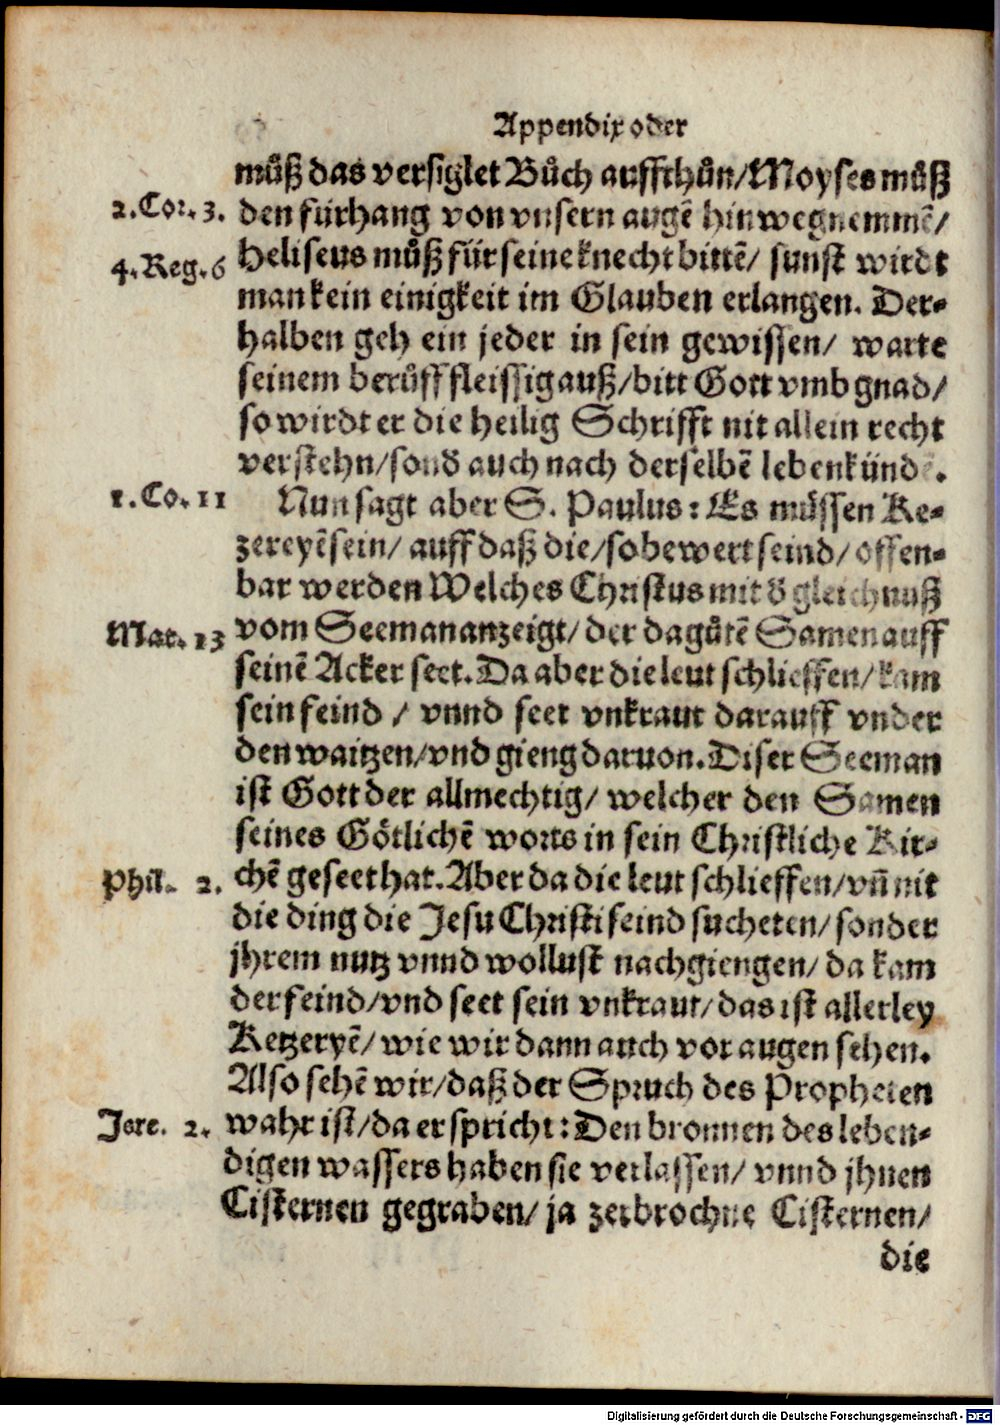 Appendix oder
muͦß das versiglet Buͦch auffthuͦn/Moyses muͦß
2. Cor. 3. den fürhang von vnsern augē hinwegnemmē/
4. Reg. 6 Heliseus muͦß für seine knecht bittē/ sunst wirdt
man kein einigkeit im Glauben erlangen. Der-
halben geh ein jeder in sein gewissen/ warte
seinem beruͦff fleissig auß/bitt Gott vmb gnad/
so wirdt er die heilig Schrifft nit allein recht
verstehn/sond auch nach derselbē leben künd.
1. Co. 11 Nun sagt aber S. Paulus: Es müssen Ke-
zereyē sein/ auff daß die/so bewert seind/ offen-
bar werden Welches Christus mit d gleichnuß
Mat. 13 vom Seeman anzeigt/ der da guͦtē Samen auff
seinē Acker seet. Da aber die leut schlieffen/ kam
sein feind / vnnd seet vnkraut darauff vnder
den waitzen/vnd gieng daruon. Diser Seeman
ist Gott der allmechtig/ welcher den Samen
seines Götlichē worts in sein Christliche Kir-
Phil. 2. chē geseet hat. Aber da die leut schlieffen/vn̄ nit
die ding die Jesu Christi seind sucheten/ sonder
jhrem nutz vnnd wollust nachgiengen/ da kam
der feind/vnd seet sein vnkraut/das ist allerley
Ketzeryē/ wie wir dann auch vor augen sehen.
Also sehē wir/daß der Spruch des Propheten
Jere. 2. wahr ist/da er spricht: Den bronnen des leben-
digen wassers haben sie verlassen/ vnnd jhnen
Cisternen gegraben/ ja zerbrochne Cisternen/
die
Digitalisierung gefördert durch die Deutsche Forschungsgemeinschaft - DFG